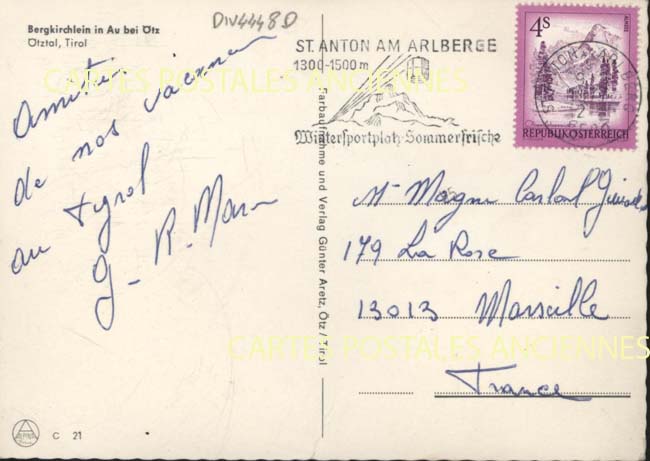 Bergkirchlein in Au bei Ötz
Ötztal, Tirol
DIV4448D
Amitiés
de nos vacances
au tyrol
G. R. Mar
ST. ANTON AM ARLBERG
1300-1500 m
Wintersportplatz-Sommerfrische
4S
ALMSEE
REPUBLIK ÖSTERREICH
Farbaufnahme und Verlag Günter Aretz, Ötz/Tirol
Mr Magne
179 La Rose
13013 Marseille
France
CARTES POSTALES ANCIENNES
CARTES POSTALES ANCIENNES
ALPINA
C 21